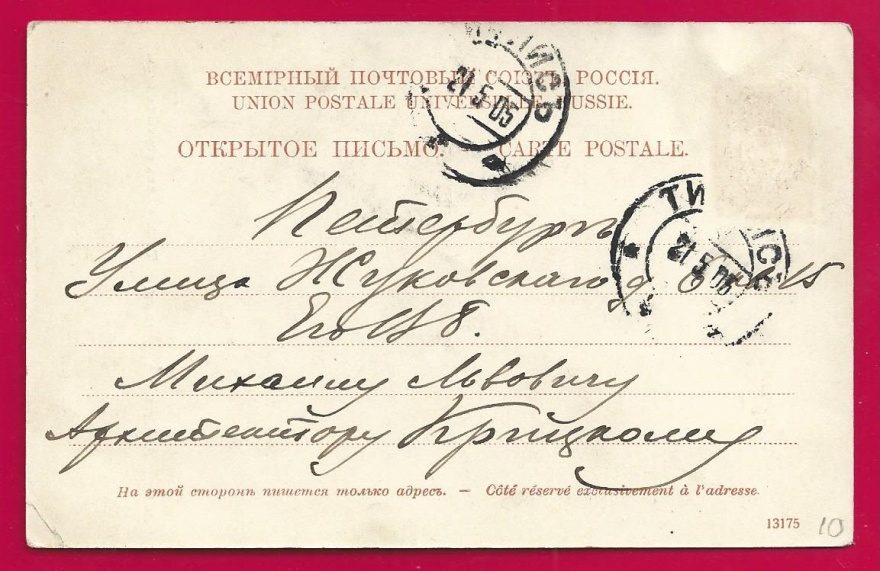 ВСЕМІРНЫЙ ПОЧТОВЫЙ СОЮЗЪ. РОССІЯ.
UNION POSTALE UNIVERSELLE. RUSSIE.
ОТКРЫТОЕ ПИСЬМО. CARTE POSTALE.
21 5 05
ТИФЛИСЪ
21 5 05
Петербургъ
Улица Жуковскаго д 15
Михаилу Львовичу
Архитектору Крицкому
На этой сторонѣ пишется только адресъ. — Côté réservé exclusivement à l'adresse.
13175
10